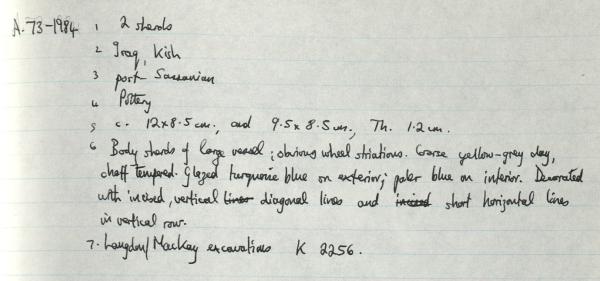 A.73-1984 1 2 sherds
2 Iraq, Kish
3 post-Sassanian
4 Pottery
5 c. 12x8.5cm., and 9.5x8.5cm., Th. 1.2cm.
6 Body sherds of large vessel; obvious wheel striations. Coarse yellow-grey clay,
chaff tempered. Glazed turquoise blue on exterior; paler blue on interior. Decorated
with incised, vertical lines diagonal lines and incised short horizontal lines
in vertical row.
7. Langdon/Mackay excavations K 2256.